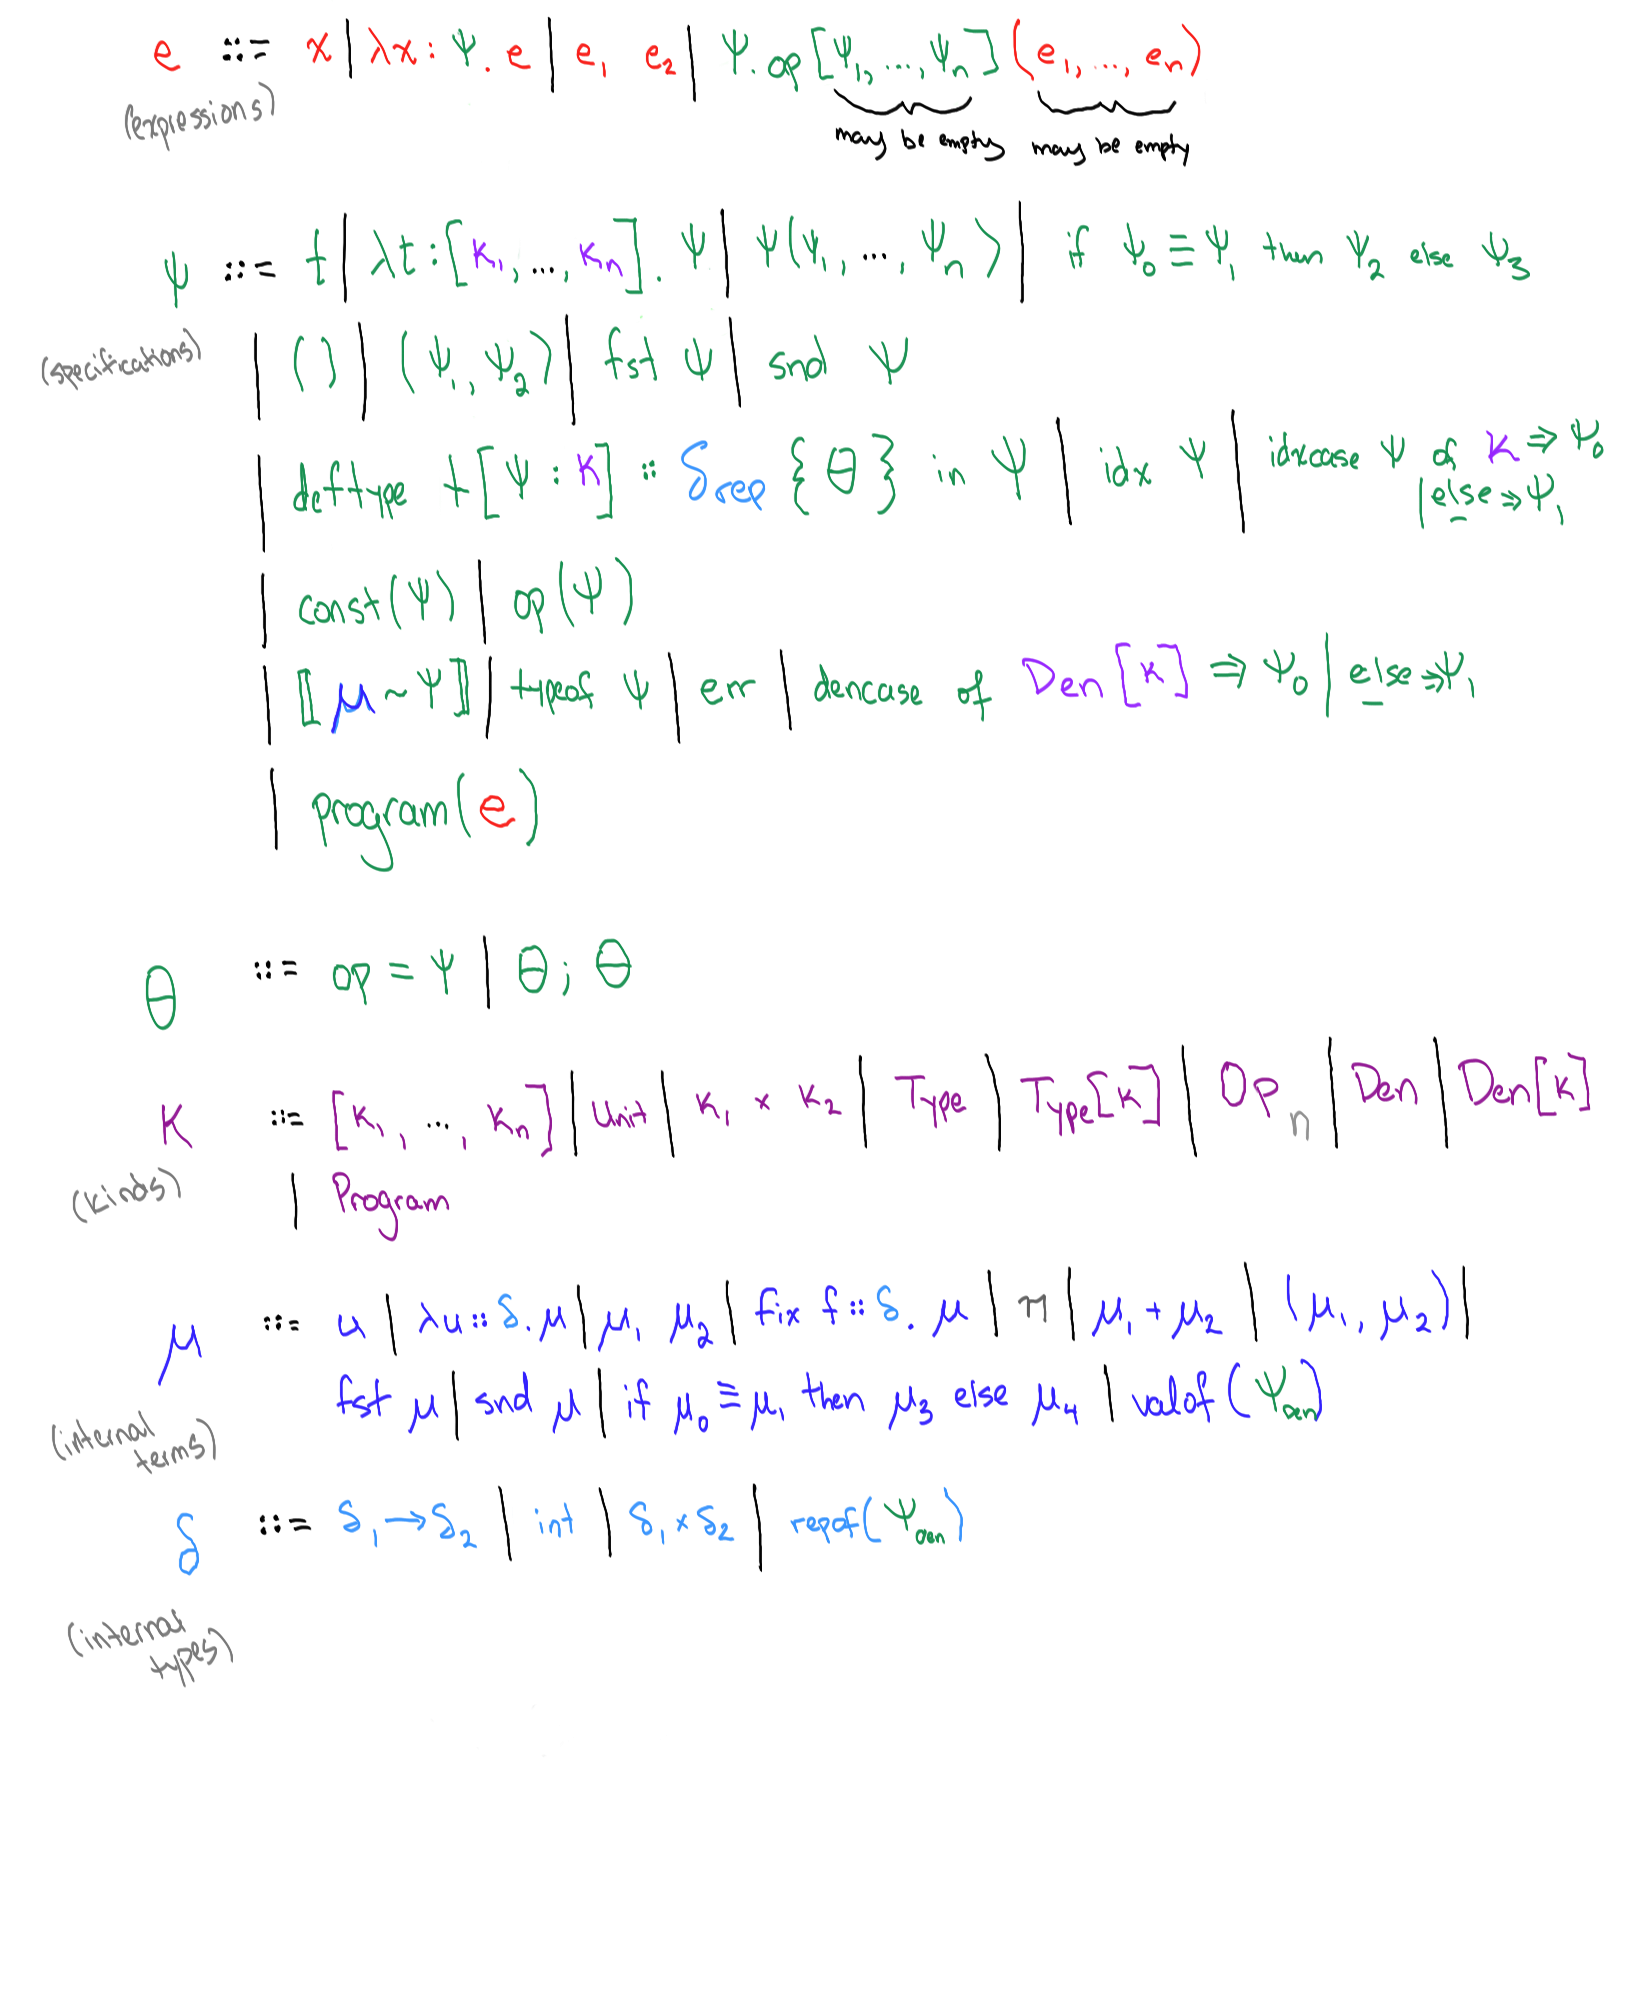 e ::= x | λx : Ψ. e | e₁ e₂ | Ψ.op[Ψ₁, ..., Ψₙ](e₁, ..., eₙ)
(expressions)
may be empty may be empty
Ψ ::= t | λt:[κ₁, ..., κₙ]. Ψ | Ψ(Ψ₁, ..., Ψₙ) | if Ψ₀ ≡ Ψ₁ then Ψ₂ else Ψ₃
(specifications)
| () | (Ψ₁, Ψ₂) | fst Ψ | snd Ψ
| deftype t[Ψ : κ] :: δrep {θ} in Ψ | idx Ψ | idxcase Ψ of κ ⇒ Ψ₀
| else ⇒ Ψ₁
| const(Ψ) | op(Ψ)
| ⟦μ ~ Ψ⟧ | typeof Ψ | err | dencase of Den[κ] ⇒ Ψ₀ | else ⇒ Ψ₁
| program(e)
θ ::= op = Ψ | θ; θ
κ ::= [κ₁, ..., κₙ] | Unit | κ₁ × κ₂ | Type | Type[κ] | Opₙ | Den | Den[κ]
(kinds)
| Program
μ ::= u | λu::δ.μ | μ₁ μ₂ | fix f::δ. μ | n | μ₁ + μ₂ | (μ₁, μ₂) |
fst μ | snd μ | if μ₀ ≡ μ₁ then μ₃ else μ₄ | valof(Ψden)
(internal
terms)
δ ::= δ₁ → δ₂ | int | δ₁ × δ₂ | repof(Ψden)
(internal
types)